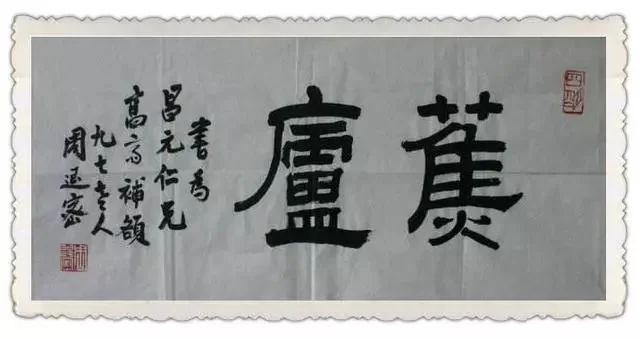 蕉廬
書為
昌元仁兄
高斋補額
九七老人
周退密